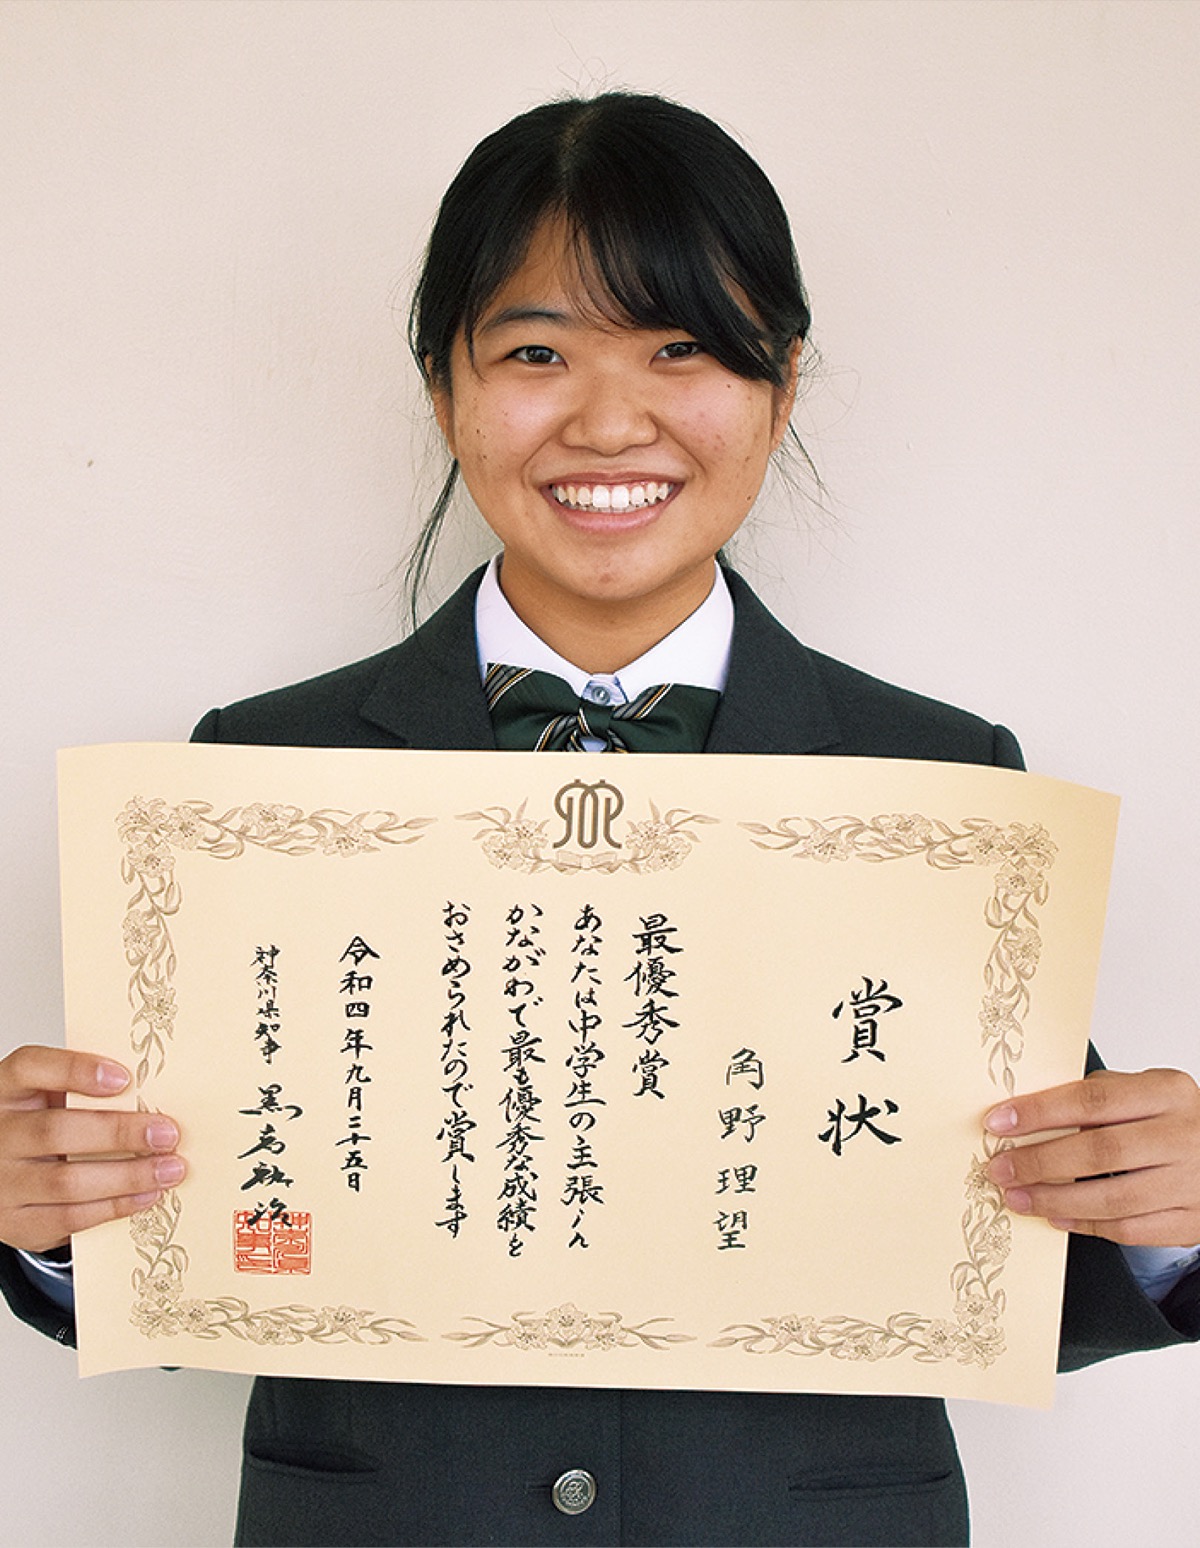 賞状
角野理望
最優秀賞
あなたは中学生の主張in
かながわで最も優秀な成績を
おさめられたので賞します
令和四年九月二十五日
神奈川県知事 黒岩祐治